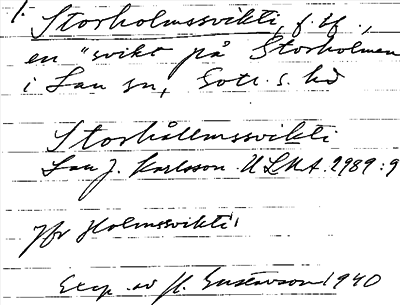 1. Storholmssvikti, f. sf.,
en "svikt på Storholmen
i Lau sn, Gotl. s. hd
Storhållmssvikti
Lau J. Karlsson ULMA. 2989:9
Jfr Holmssvikti
Excp. av H. Gustavson 1940